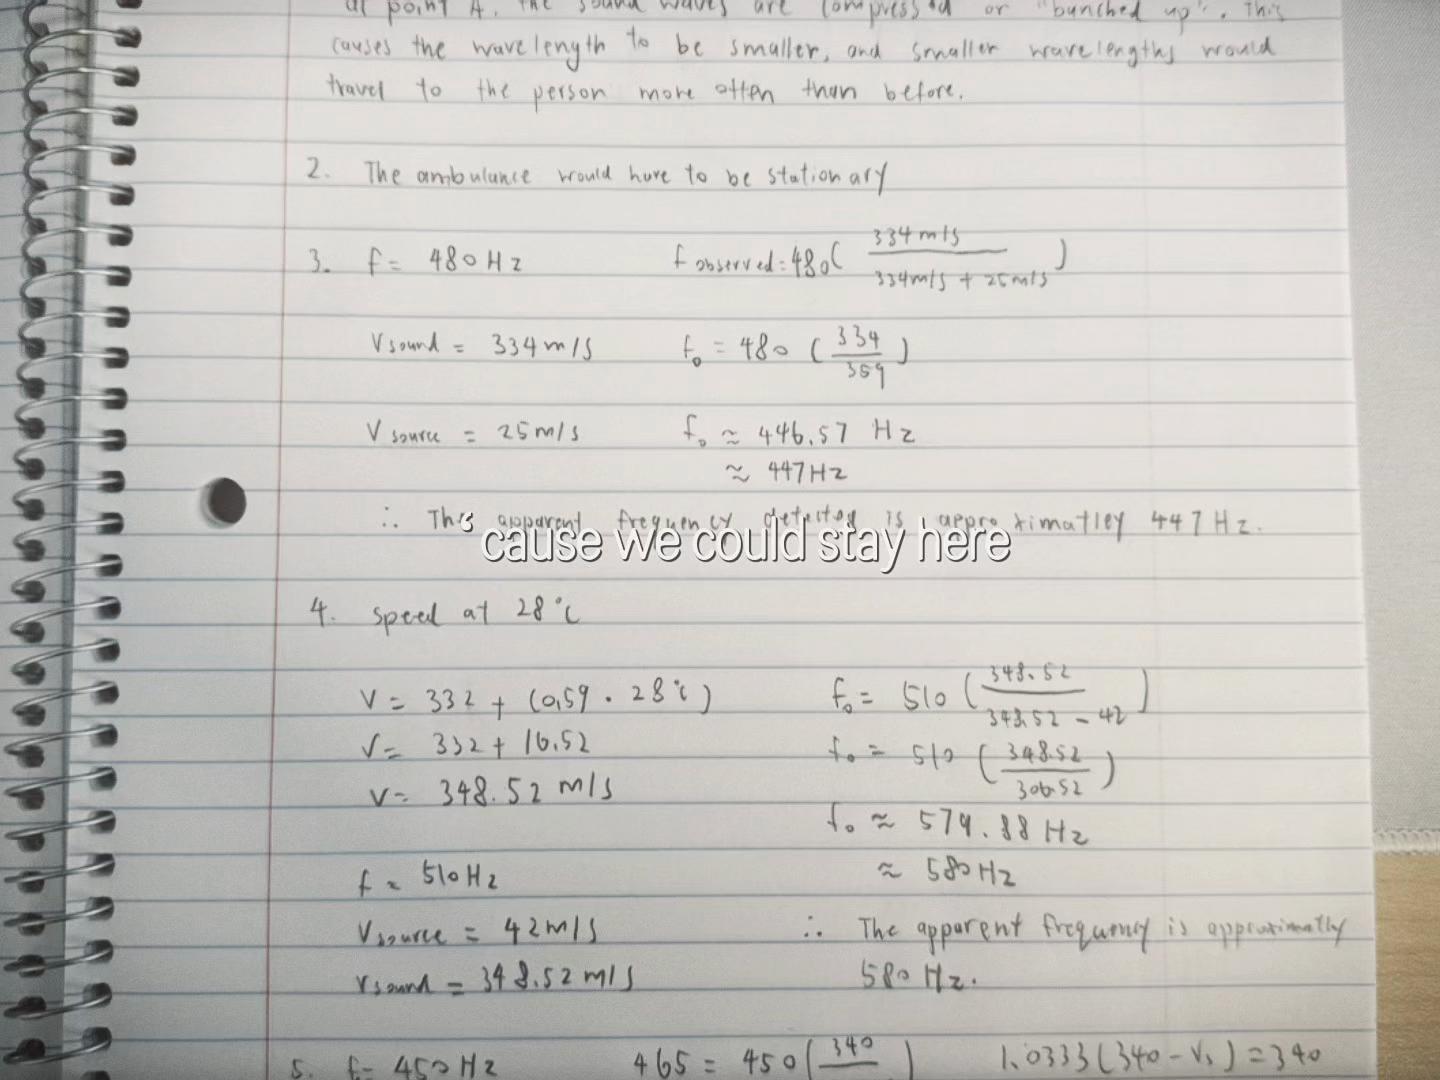 at point A, the sound waves are compressed or "bunched up". This
causes the wavelength to be smaller, and smaller wavelengths would
travel to the person more often than before.
2. The ambulance would have to be stationary
3. f = 480 Hz
f observed = 480 ( 334 m/s / 334 m/s + 25 m/s )
V sound = 334 m/s
f₀ = 480 ( 334 / 359 )
V source = 25 m/s
f₀ ≈ 446.57 Hz
≈ 447 Hz
∴ The apparent frequency detected is approximatley 447 Hz.
cause we could stay here
4. speed at 28°C
V = 332 + (0.59 · 28°C)
V = 332 + 16.52
V = 348.52 m/s
f = 510 Hz
V source = 42 m/s
V sound = 348.52 m/s
f₀ = 510 ( 348.52 / 348.52 - 42 )
f₀ = 510 ( 348.52 / 306.52 )
f₀ ≈ 579.88 Hz
≈ 580 Hz
∴ The apparent frequency is approximatly
580 Hz.
5. f = 450 Hz
465 = 450 ( 340 )
1.0333 (340 - Vs) = 340